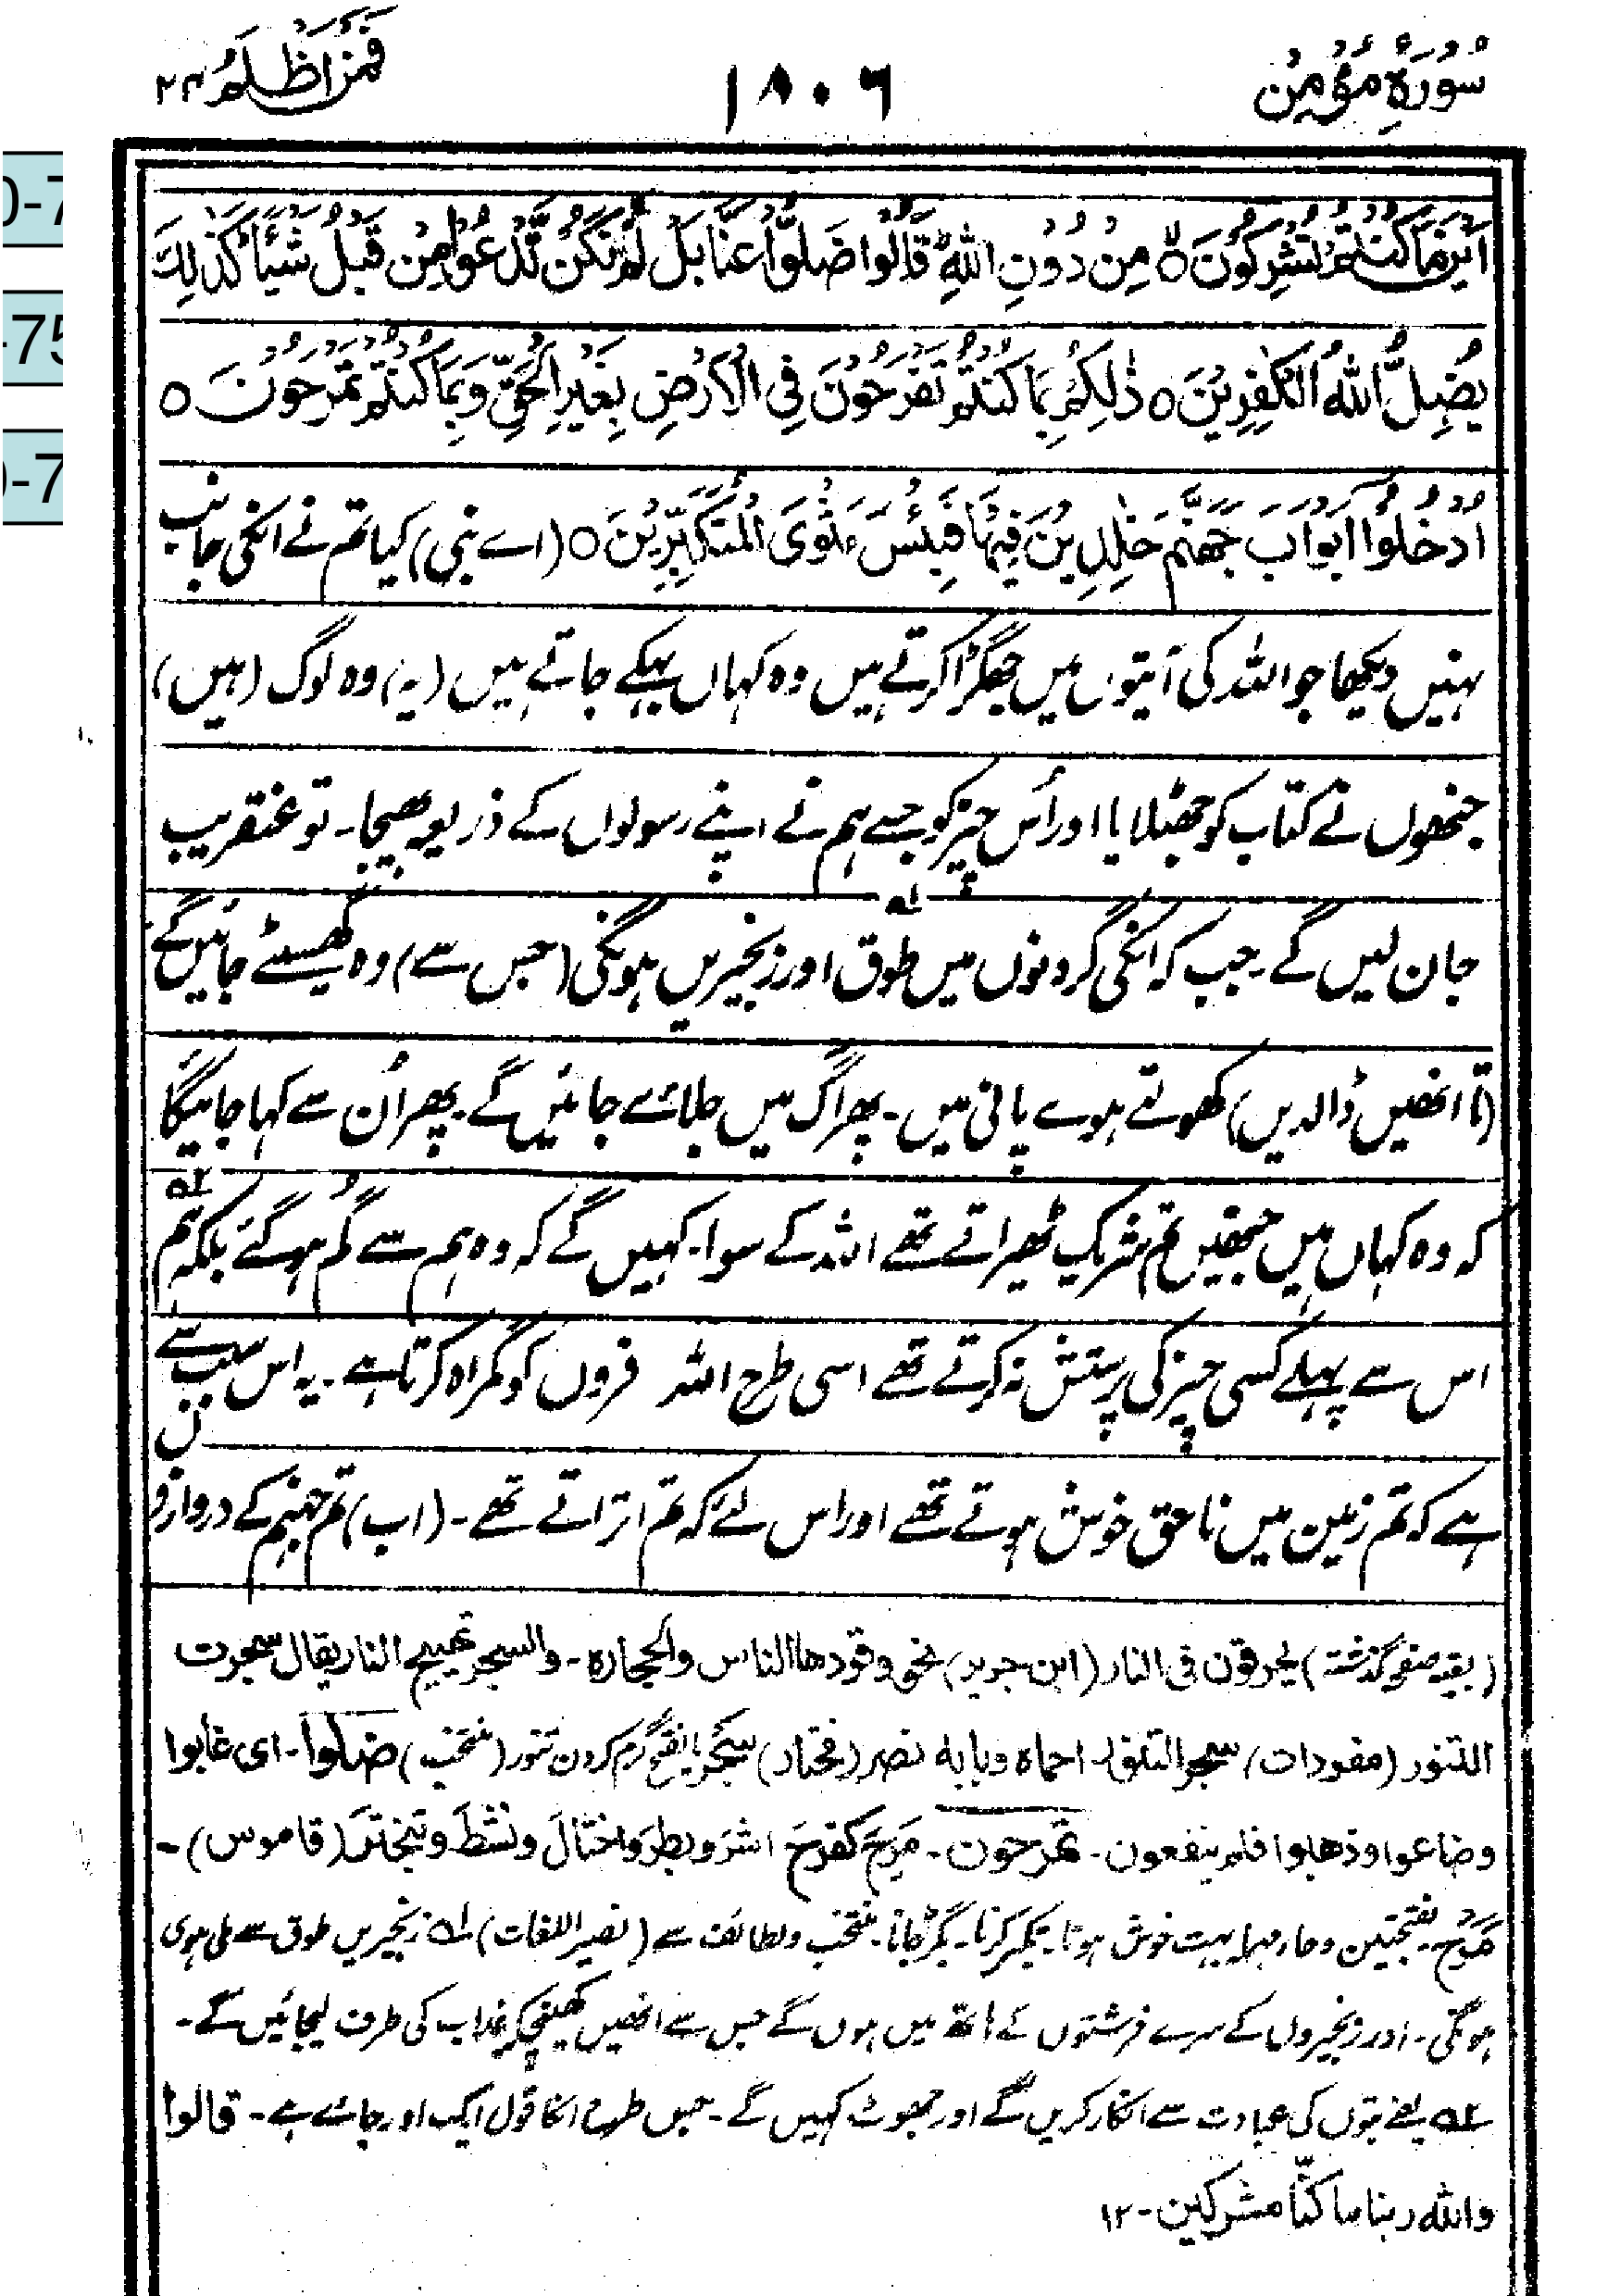 سُوْرَۃُ مُؤْمِنْ
۱۸۰۶
فَمَنْ اَظْلَمُ ۲۴
0-7
-75
0-7
اَیْنَ مَا كُنْتُمْ تُشْرِكُوْنَ ۝ مِنْ دُوْنِ اللّٰهِ ؕ قَالُوْا ضَلُّوْا عَنَّا بَلْ لَّمْ نَكُنْ نَّدْعُوْا مِنْ قَبْلُ شَیْـًٔا كَذٰلِكَ
یُضِلُّ اللّٰهُ الْكٰفِرِیْنَ ۝ ذٰلِكُمْ بِمَا كُنْتُمْ تَفْرَحُوْنَ فِی الْاَرْضِ بِغَیْرِ الْحَقِّ وَ بِمَا كُنْتُمْ تَمْرَحُوْنَ ۝
اُدْخُلُوْۤا اَبْوَابَ جَهَنَّمَ خٰلِدِیْنَ فِیْهَا فَبِئْسَ مَثْوَی الْمُتَكَبِّرِیْنَ ۝ (اے نبی) کیا تم نے انکی جانب
نہیں دیکھا جو اللہ کی آیتوں میں جھگڑا کرتے ہیں وہ کہاں بہکے جاتے ہیں (یہ) وہ لوگ (ہیں)
جنھوں نے کتاب کو جھٹلایا اور اُس چیز کو جسے ہم نے اپنے رسولوں کے ذریعہ بھیجا۔ تو عنقریب
جان لیں گے۔ جب کہ انکی گردنوں میں طوق اور زنجیریں ہونگی ۱؎ (جس سے) وہ گھسیٹے جائیں گے
(تا انھیں ڈالدیں) کھولتے ہوے پانی میں۔ پھر آگ میں جلائے جائیں گے۔ پھر اُن سے کہا جائیگا
کہ وہ کہاں ہیں جنھیں تم شریک ٹھیراتے تھے اللہ کے سوا۔ کہیں گے کہ وہ ہم سے گُم ہو گئے بلکہ ہم ۲؎
اس سے پہلے کسی چیز کی پرستش نہ کرتے تھے اسی طرح اللہ فروں کو گمراہ کرتا ہے۔ یہ اس سبب سے
ہے کہ تم زمین میں ناحق خوش ہوتے تھے اور اس لئے کہ تم اتراتے تھے۔ (اب) تم جہنم کے دروازوں
(بقیہ صفحہ گذشتہ) یحرقون فی النار (ابن جریر) نحو وقودھا الناس والحجارہ۔ والسجر تھییج النار یقال سجرت
التنور (مفردات) سجر التنور۔ احماہ وبابہ نصر (مختار) سَجْر بالفتح گرم کردن تنور (منتخب) ضلوا۔ ای غابوا
وضاعوا وذھبوا فلم ینفعون۔ تمرحون۔ مَرِحَ کفَرِحَ اشَرَ وبطِرَ واختالَ ونشَطَ وتبخترَ (قاموس)۔
مَرَح۔ بفتحتین وحاء مہملہ بہت خوش ہونا۔ تکبر کرنا۔ بگڑ جانا۔ منتخب ولطائف سے (نصیر اللغات) ۱؎ زنجیریں طوق سے ملی ہوی
ہونگی۔ اور زنجیروں کے سرے فرشتوں کے ہاتھ میں ہوں گے جس سے انھیں کھینچکر عذاب کی طرف لیجائیں گے۔
۲؎ یعنے بتوں کی عبادت سے انکار کریں گے اور جھوٹ کہیں گے۔ جس طرح انکا قول ایک اور جائے ہے۔ قالوا
واللّٰه ربنا ما کنّا مشرکین۔ ۱۲